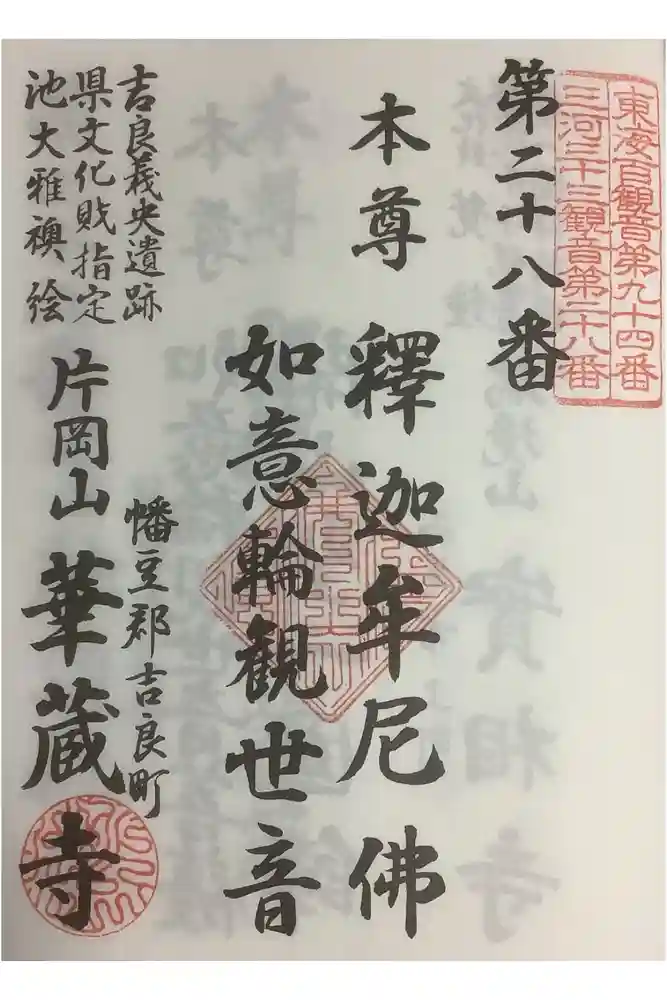 東海百観音第九十四番
三河三十三観音第二十八番
第二十八番
本尊 釋迦牟尼佛
如意輪観世音
吉良義央遺跡
県文化財指定
池大雅襖絵
幡豆郡吉良町
片岡山 華蔵寺